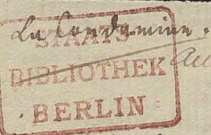 La Condamine.
STAATS
BIBLIOTHEK
BERLIN